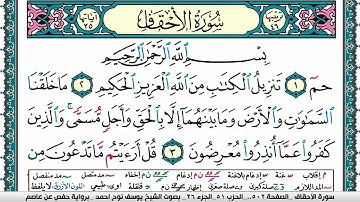 ترتيبها ٤٦ سورة الأحقاف آياتها ٣٥
بِسْمِ ٱللَّهِ ٱلرَّحْمَٰنِ ٱلرَّحِيمِ
حمٓ ١ تَنزِيلُ ٱلْكِتَٰبِ مِنَ ٱللَّهِ ٱلْعَزِيزِ ٱلْحَكِيمِ ٢ مَا خَلَقْنَا
ٱلسَّمَٰوَٰتِ وَٱلْأَرْضَ وَمَا بَيْنَهُمَآ إِلَّا بِٱلْحَقِّ وَأَجَلٍ مُّسَمًّى ۚ وَٱلَّذِينَ
كَفَرُوا۟ عَمَّآ أُنذِرُوا۟ مُعْرِضُونَ ٣ قُلْ أَرَءَيْتُم مَّا تَدْعُونَ مِن
سورة الأحقاف الصفحة ٥٠٢ الحزب ٥١ الجزء ٢٦ بصوت الشيخ يوسف نوح احمد برواية حفص عن عاصم